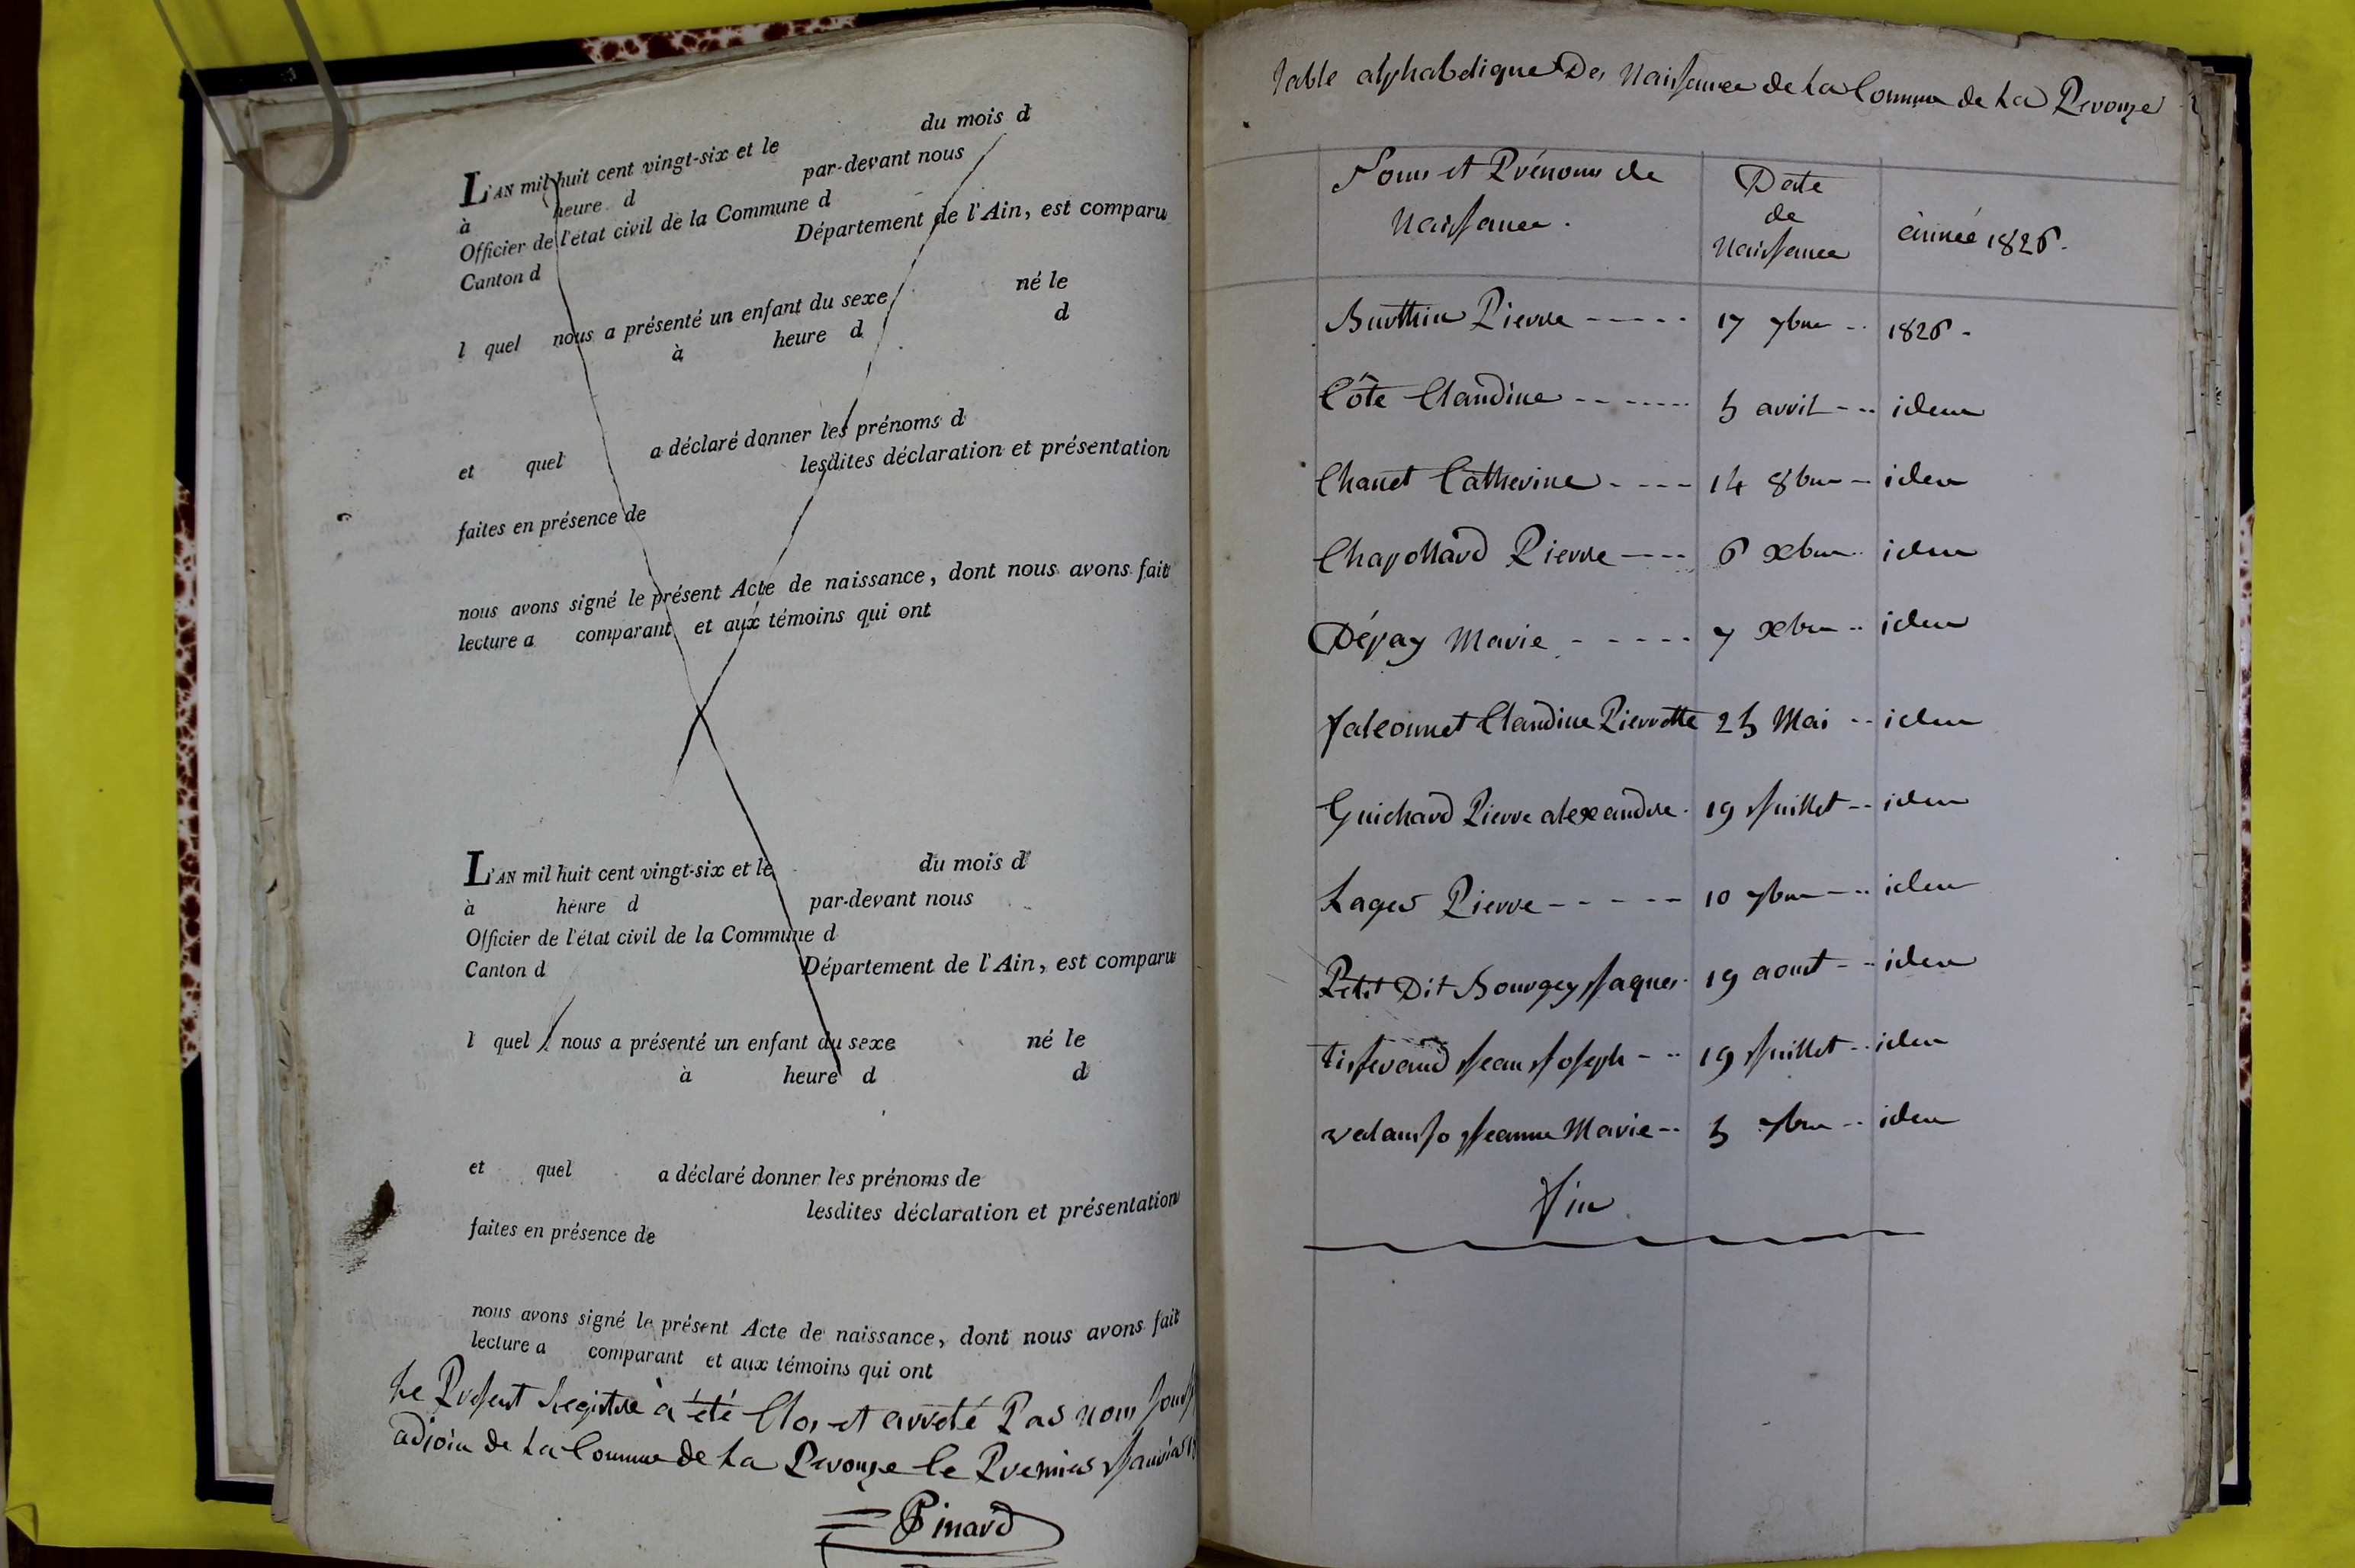 L'AN mil huit cent vingt-six et le du mois d
à heure d par-devant nous
Officier de l'état civil de la Commune d
Canton d Département de l'Ain, est comparu
l quel nous a présenté un enfant du sexe né le
à heure d d
et quel a déclaré donner les prénoms d
lesdites déclaration et présentation
faites en présence de
nous avons signé le présent Acte de naissance, dont nous avons fait
lecture a comparant et aux témoins qui ont
L'AN mil huit cent vingt-six et le du mois d
à heure d par-devant nous
Officier de l'état civil de la Commune d
Canton d Département de l'Ain, est comparu
l quel nous a présenté un enfant du sexe né le
à heure d d
et quel a déclaré donner les prénoms de
lesdites déclaration et présentation
faites en présence de
nous avons signé le présent Acte de naissance, dont nous avons fait
lecture a comparant et aux témoins qui ont
Le Present Registre à été Clos et arreté Par nous
adjoin de La Commune de La Perouze le Premier Janvier
Pinard
Table alphabetique Des Naissance de La Commune de La Perouze
Noms et Prénoms de Naissance. Date de Naissance année 1826.
Burthier Pierre ----- 17 7bre -- 1826 -
Côte Claudine ------ 5 avril --- idem
Chanet Catherine ---- 14 8bre -- idem
Chapollard Pierre ---- 6 xbre -- idem
Dépay Marie ----- 7 xbre -- idem
falconnet Claudine Pierrette 25 Mai -- idem
Guichard Pierre alexandre - 19 Juillet -- idem
Lager Pierre ----- 10 7bre --- idem
Petit Dit Bourgey Jaques - 19 aout -- idem
tisserand Jean Joseph --- 19 Juillet -- idem
Jeanne Marie -- 5 7bre -- idem
fin